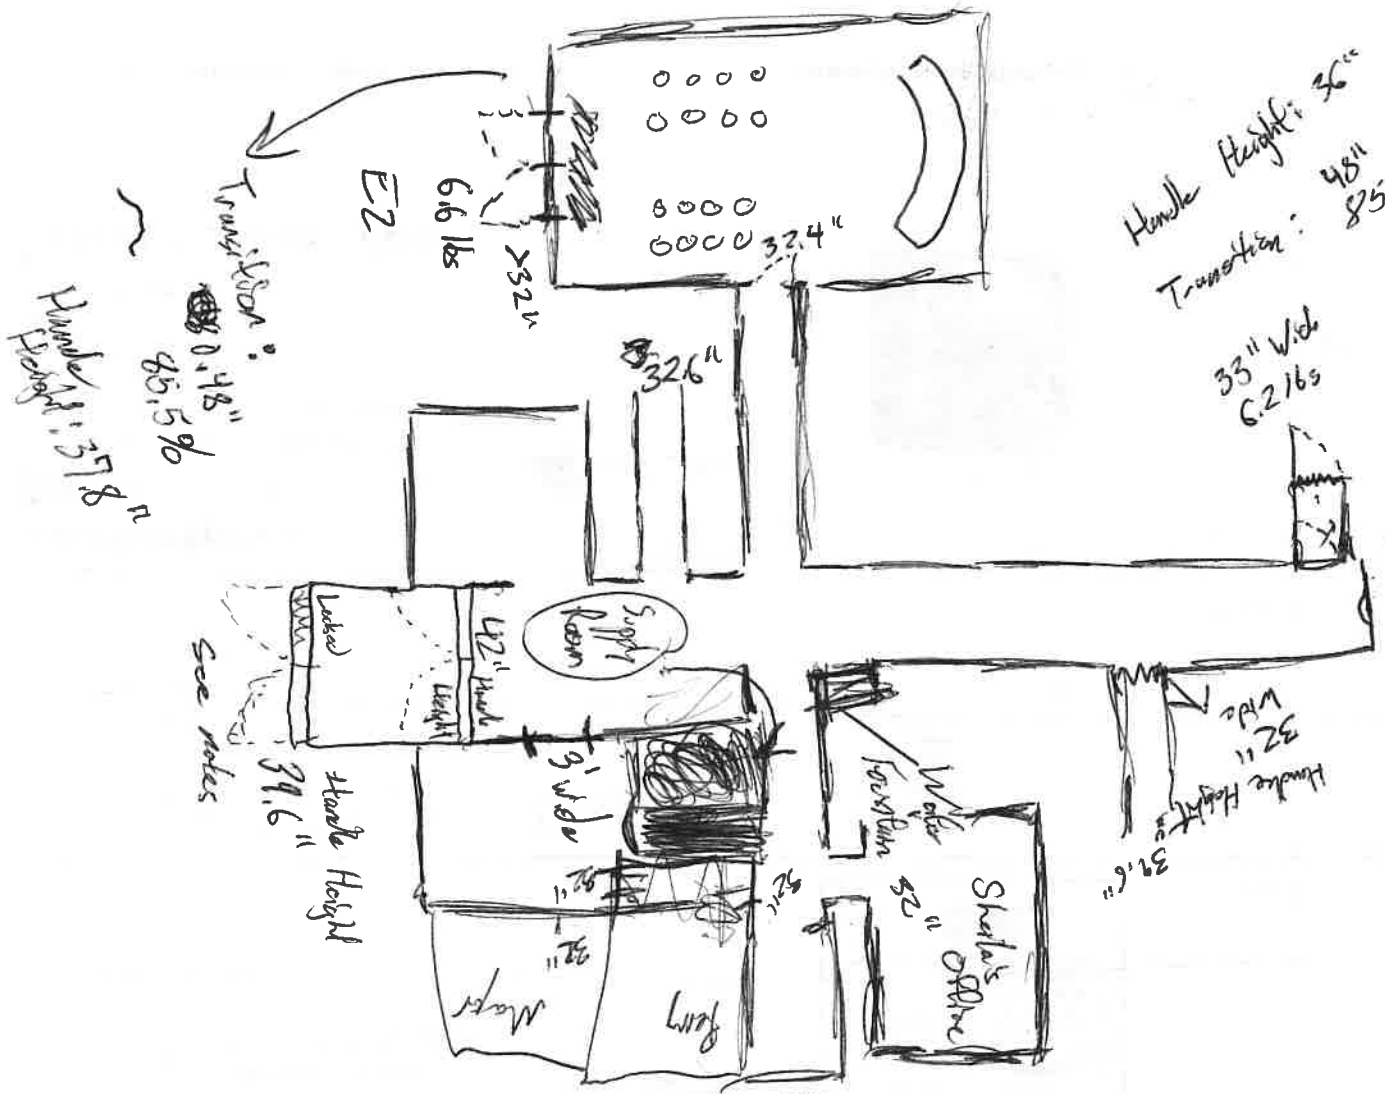 Handle Height: 36"
Transition: 48"
85
33" Wide
6.2 lbs
32.4"
>32"
6.6 lbs
E2
Transition:
0.48"
85.5%
Handle
Height: 37.8"
32.6"
Supply
Room
42" Handle
Height
Locked
See notes
39.6"
Handle Height
3' wide
32"
32"
32"
Major
Perry
Water
Fountain
32"
Sheila's
Office
32"
Wide
Handle Height: 39.6"